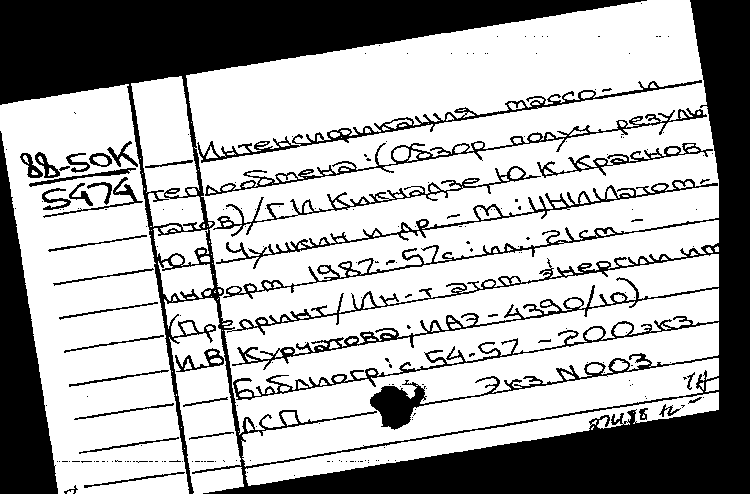 88-50К
5474
Интенсификация массо- и
теплообмена: (Обзор получ. резуль
татов)/Г.И. Кикнадзе, Ю.К. Краснов,
Ю.В. Чушкин и др. - М.: ЦНИИатом-
информ, 1987. - 57с.: ил.; 21см. -
(Препринт/Ин-т атом энергии им
И.В Курчатова; ИАЭ-4390/10).
Библиогр.: с.54-57. - 200экз.
ДСП. Экз. N003.